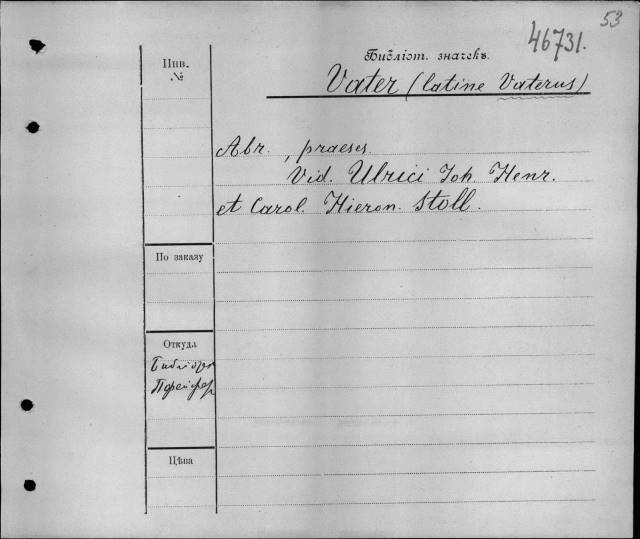 53
46731.
Инв.
№
Библіот. значекъ.
Vater (latine Vaterus)
Abr., praeses.
Vid. Ulrici Joh. Henr.
et Carol. Hieron. Stoll.
По заказу
Откуда
Цѣна